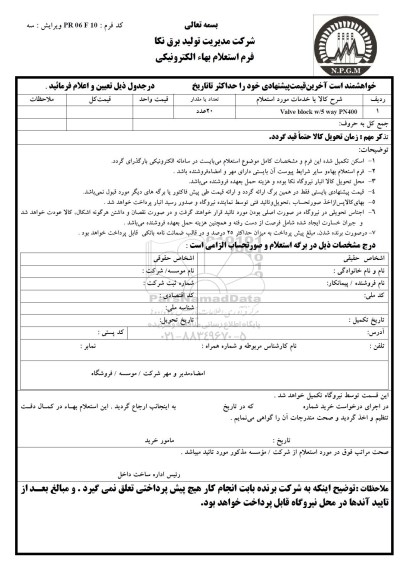 بسمه تعالی
کد فرم : PR 06 F 10 ویرایش : سه
شرکت مدیریت تولید برق نکا
فرم استعلام بهاء الکترونیکی
N.P.G.M
خواهشمند است آخرین قیمت پیشنهادی خود را حداکثر تا تاریخ درجدول ذیل تعیین و اعلام فرمائید .
ردیف شرح کالا یا خدمات مورد استعلام تعداد یا مقدار قیمت واحد قیمت کل ملاحظات
۱ Valve block w/5 way PN400 ۲۰عدد
جمع کل به حروف:
تذکر مهم : زمان تحویل کالا حتماً قید گردد.
توضیحات:
۱- اسکن تکمیل شده این فرم و مشخصات کامل موضوع استعلام می‌بایست در سامانه الکترونیکی بارگذاری گردد.
۲- فرم استعلام بهاءو سایر شرایط پیوست آن بایستی دارای مهر و امضاءفروشنده باشد .
۳- محل تحویل کالا انبار نیروگاه نکا بوده و هزینه حمل بعهده فروشنده می‌باشد.
۴- قیمت پیشنهادی بایستی فقط در همین برگ ارائه گردد و ارائه قیمت طی پیش فاکتور یا برگه های دیگر مورد قبول نمی‌باشد.
۵- بهای‌کالاپس‌ازاخذ صورتحساب ،تحویل‌وتائید فنی توسط نماینده نیروگاه و صدور رسید انبار پرداخت خواهد شد .
۶- اجناس تحویلی در نیروگاه در صورت اصلی بودن مورد تائید قرار خواهند گرفت و در صورت نقصان و داشتن هرگونه اشکال، کالا عودت خواهد شد
و جبران خسارت ایجاد شده شامل فرصت از دست رفته و همچنین هزینه حمل بعهده فروشنده می‌باشد .
۷- درصورت برنده شدن، مبلغ پیش پرداخت به میزان حداکثر ۲۵ درصد و در قالب ضمانت نامه بانکی قابل پرداخت خواهد بود .
درج مشخصات ذیل در برگه استعلام و صورتحساب الزامی است :
اشخاص حقیقی اشخاص حقوقی
نام و نام خانوادگی : نام موسسه/ شرکت :
نام فروشنده / پیمانکار: شماره ثبت شرکت :
کد ملی: کد اقتصادی :
شناسه ملی:
تاریخ تکمیل : تاریخ تحویل:
آدرس: کد پستی :
تلفن : نام کارشناس مربوطه و شماره همراه : نمابر :
ParsNamadData
پایگاه اطلاع رسانی
۰۲۱-۸۸۳۴۹۶۷۰-۵
امضاءمدیر و مهر شرکت / موسسه / فروشگاه
این قسمت توسط نیروگاه تکمیل خواهد شد .
در اجرای درخواست خرید شماره که در تاریخ به اینجانب ارجاع گردید . این استعلام بهاء در کمال دقت
تنظیم و اخذ گردید و صحت مندرجات آن را گواهی می‌نمایم .
تاریخ : مامور خرید
صحت مراتب فوق در مورد استعلام از شرکت / مؤسسه مذکور مورد تائید میباشد .
رئیس اداره ساخت داخل
ملاحظات :توضیح اینکه به شرکت برنده بابت انجام کار هیچ پیش پرداختی تعلق نمی گیرد . و مبالغ بعد از
تایید آندها در محل نیروگاه قابل پرداخت خواهد بود.